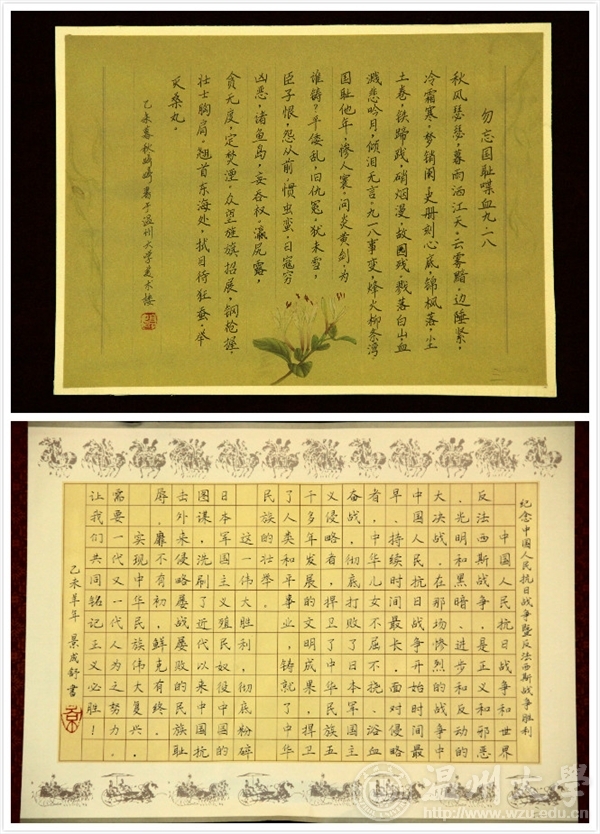 勿忘国耻喋血九·一八
秋风瑟瑟,暮雨洒江天,云雾黯,边陲紧,
冷霜寒,梦销阑,史册刻心底,锦枫落,尘
土卷,铁蹄践,硝烟漫,故国残,戮落白山,血
溅悲吟月,倾泪无言。九一八事变,烽火柳条湾
国耻他年,惨人寰,问炎黄剑,为
谁铸?平倭乱,旧仇冤,犹未雪,
臣子恨,怨从前,惯虫蛮,日寇穷
凶恶,诸鱼岛,妄吞权,瀛尻露,
贪无度,定焚湮。众望旌旗招展,钢枪握,
壮士胸肩。翘首东海处,拭目待狂蚕,举
灭桑丸。
乙未暮秋 于温州大学美术楼
纪念中国人民抗日战争暨反法西斯战争胜利
中国人民抗日战争和世界
反法西斯战争,是正义和邪恶
、光明和黑暗、进步和反动的
大决战。在那场惨烈的战争中
中国人民抗日战争开始时间最
早、持续时间最长。面对侵略
者,中华儿女不屈不挠、浴血
奋战,彻底打败了日本军国主
义侵略者,捍卫了中华民族五
千多年发展的文明成果,捍卫
了人类和平事业,铸就了中华
民族的壮举。
这一伟大胜利,彻底粉碎
日本军国主义殖民奴役中国的
图谋,洗刷了近代以来中国抗
击外来侵略屡战屡败的民族耻
辱。靡不有初,鲜克有终。
实现中华民族伟大复兴,
需要一代又一代人为之努力。
让我们共同铭记正义必胜!
乙未羊年 景成舒书
温州大学
http://www.wzu.edu.cn